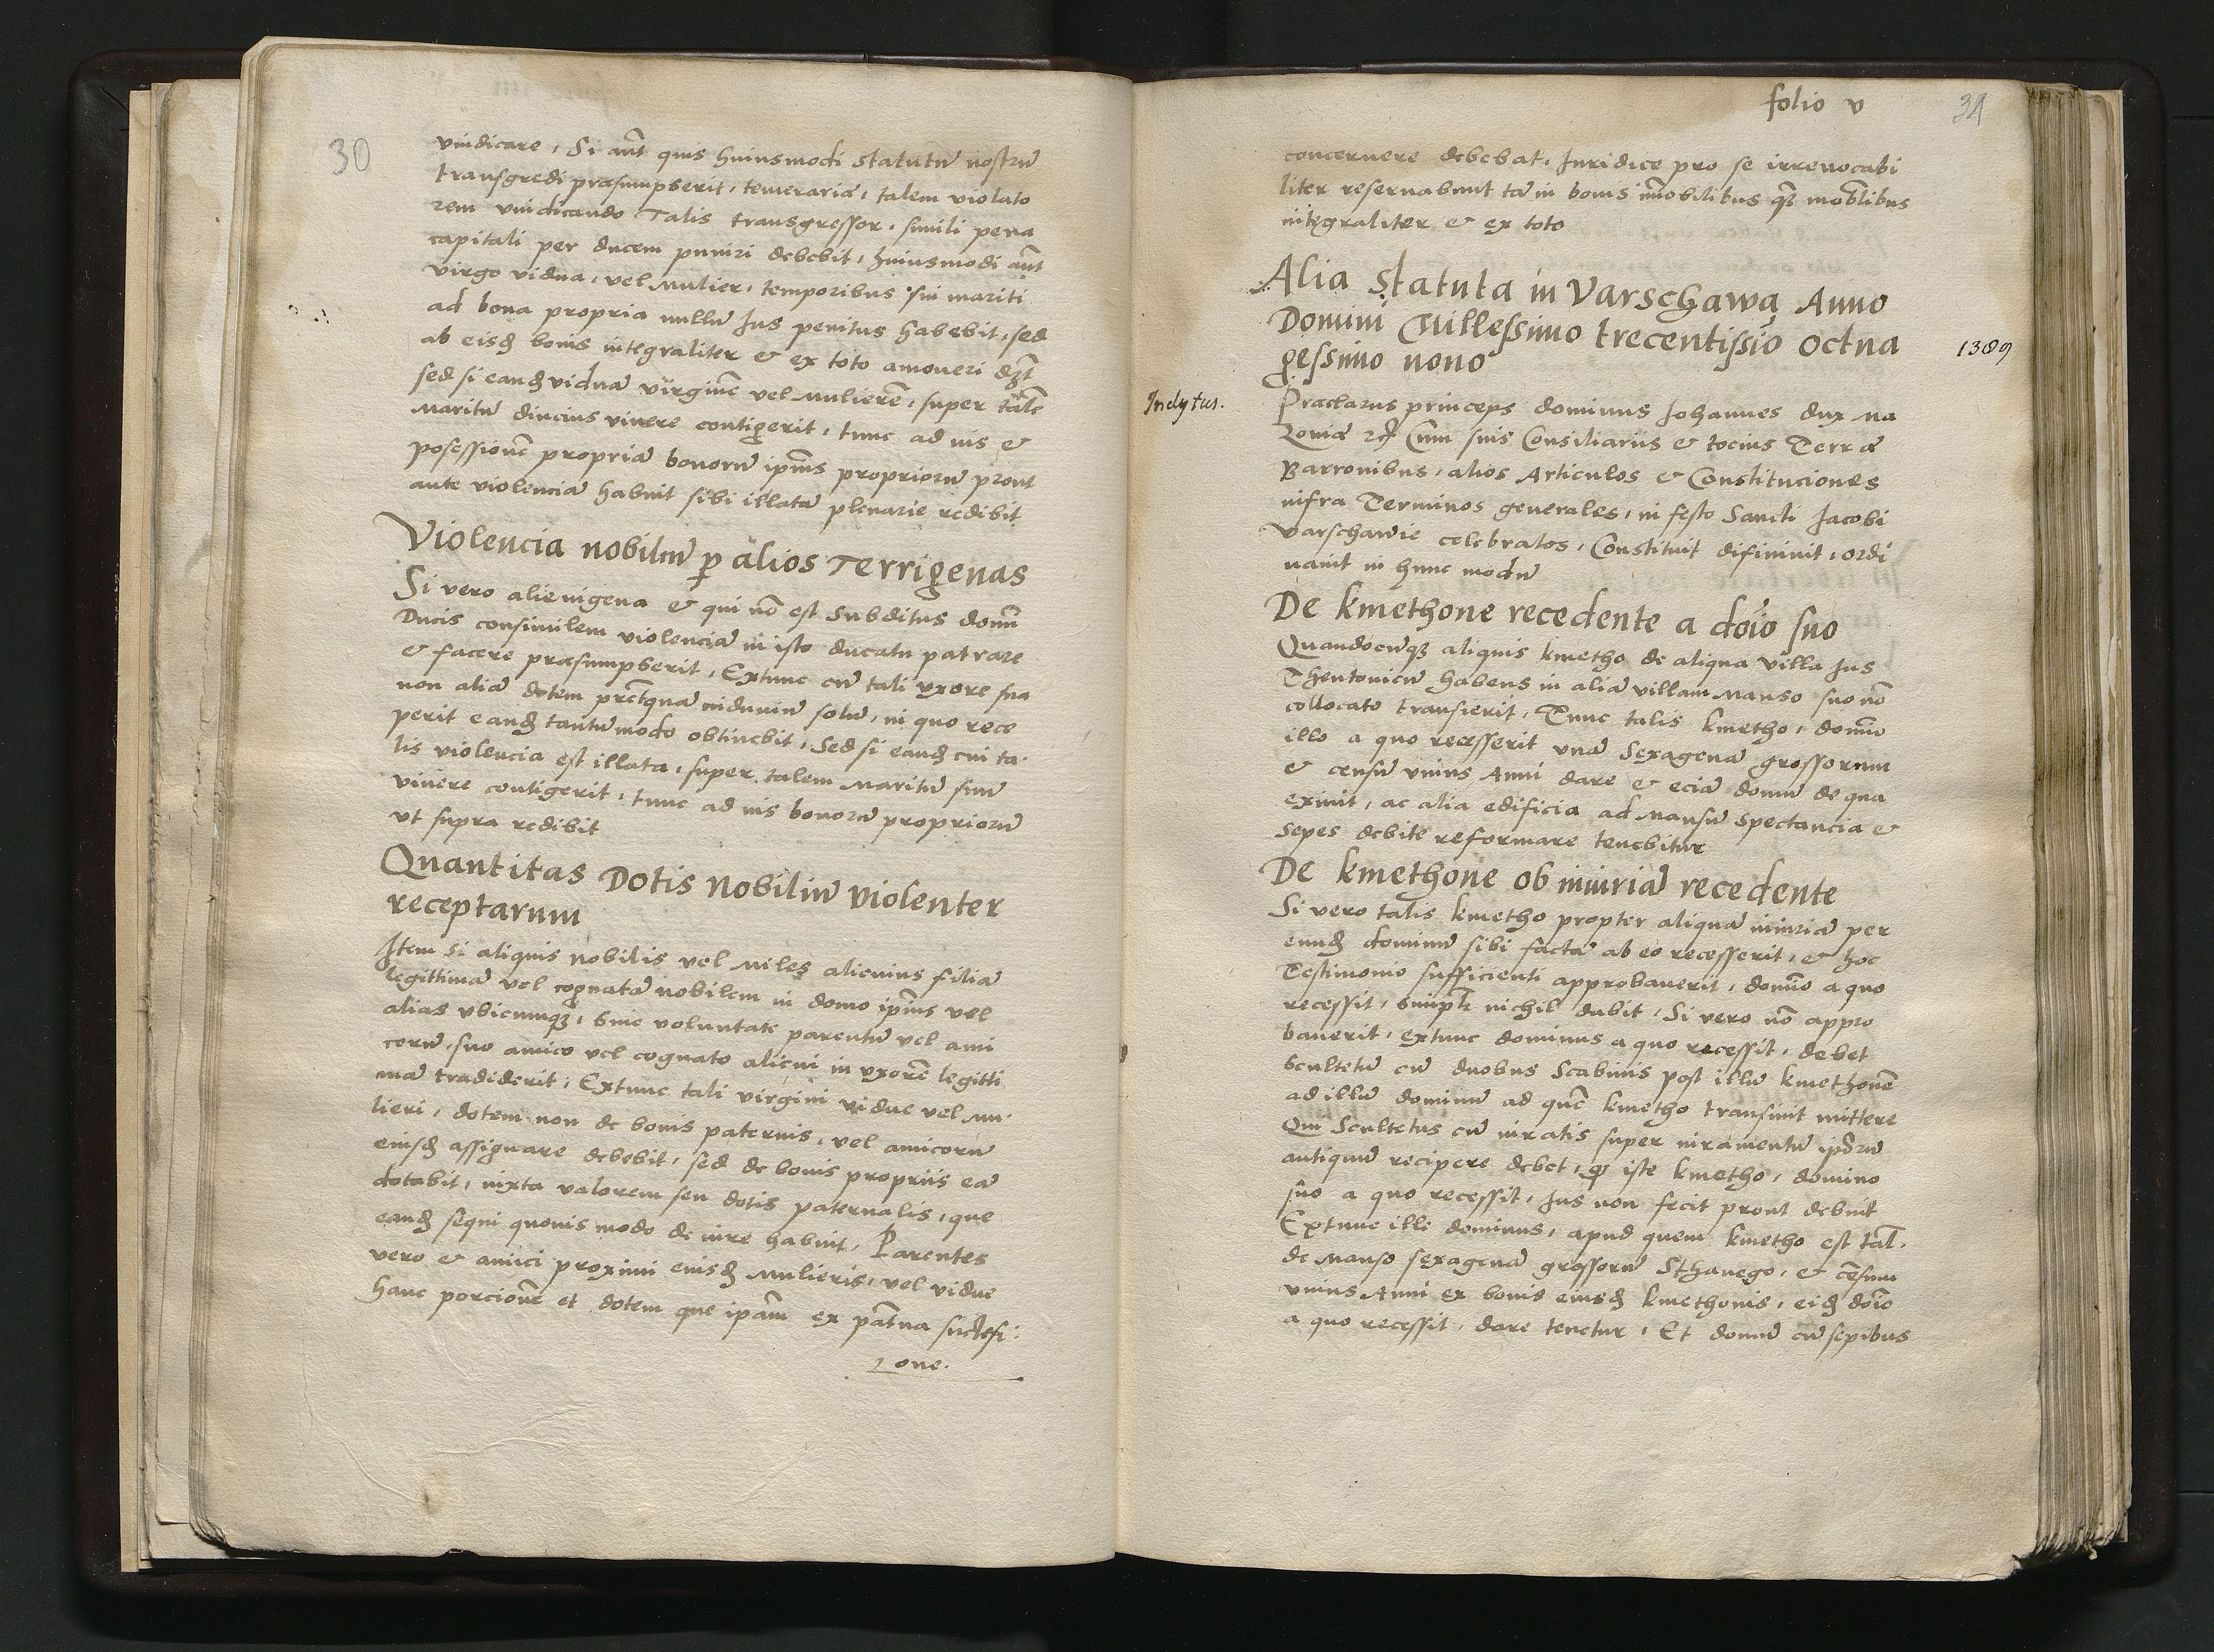 30
vindicare, Si aūt quis huiusmodi statutū nostrū
transgredi præsumpserit, temerariæ, talem violato
rem vindicando Talis transgressor, simili pena
capitali per ducem puniri debebit, huiusmodi aūt
virgo vidua, vel Mulier, temporibus sui mariti
ad bona propria nullū Jus penitus habebit, sed
ab eisđ bonis integraliter & ex toto amoveri
sed si eanđ viduā virginē vel Mulierē, super talē
Maritū diucius vivere contigerit, tunc ad ius &
posessionē propriā bonorū ip̄ius propriorū prout
ante violenciā habuit sibi illatā plenarie redibit
Violencia nobiliū ꝑ alios Terrigenas
Si vero alienigena & qui nō est subditus domī
Ducis consimilem violenciā in isto ducatu patrare
& facere præsumpserit, Extunc cū tali uxore sua
non aliā dotem viduviū solū, in quo rece
perit eanđ tantūmodo obtinebit, Sed si eanđ cui ta
lis violencia est illata, super talem Maritū suū
vivere contigerit, tunc ad ius bonorū propriorū
ut supra redibit
Quantitas Dotis Nobiliū violenter
receptarum
Item si aliquis nobilis vel Miles alicuius filiā
legittimā vel cognatā nobilem in domo ip̄ius vel
alias ubicumqꝫ, sine voluntate parentū vel ami
corū, suo amico vel cognato alicui in uxorē legitti
mā tradiderit, Extunc tali virgini vidue vel Mu
lieri, dotem non de bonis paternis, vel amicorū
eiusđ assignare debebit, sed de bonis propriis eā
dotabit, iuxta valorem seu dotis paternalis, que
eanđ sequi quovis modo de iure habuit, Parentes
vero & amici proximi eiusđ Mulieris, vel vidue
hanc porcionē et dotem que ip̄am ex pat̄na succesi:
one.
folio v
31
concernere debebat, Juridice pro se irrevocabi
liter reservabunt tā in bonis im̄obilibus qꝫ mob̄libus
integraliter & ex toto
Alia statuta in Varschawa Anno
Domini Millessimo trecentissīo octua
gessimo nono
1389
Inclytus.
Præclarus princeps dominus Johannes dux Ma
zoviæ Cum suis Consiliariis & tocius Terræ
Barronibus, alios Articulos & Constituciones
infra Terminos generales, in festo Sancti Jacobi
Varschawie celebratos, Constituit difinivit, ordi
navit in hunc modū
De kmethone recedente a doīo suo
Quandocūqꝫ aliquis kmetho de aliqua villa Jus
Theutonicū habens in aliā villam Manso suo nō
collocato transierit, Tunc talis kmetho, domīo
illo a quo recesserit unā Sexagenā grossorum
& censū unius Anni dare & eciā domū de qua
exivit, ac alia edificia ad Mansū spectancia &
sepes debite reformare tenebitur
De kmethone ob iniuriā recedente
Si vero talis kmetho propter aliquā iniuriā per
eunđ dominū sibi factā ab eo recesserit, & hoc
Testimonio sufficienti approbaverit, domīo a quo
recessit, nichil dabit, Si vero nō appro
baverit, extunc dominus a quo recessit, debet
Scultetū cū duobus Scabinis post illū kmethonē
ad illū dominū ad quē kmetho transivit mittere
Qui Scultetus cū iuratis super iuramentū ip̄orū
antiquū recipere debet, ꝙ iste kmetho, domino
suo a quo recessit, Jus non fecit prout debuit
Extunc ille dominus, apud quem kmetho est tal.
de Manso sexagenā grossorū Sthanego, & cēsum
unius Anni ex bonis eiusđ kmethonis, eiđ doīo
a quo recessit, dare tenetur, Et domū cū sepibus